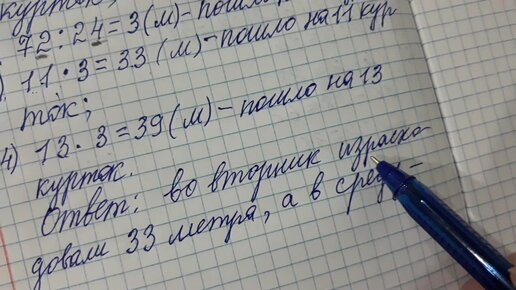 курток;
72 : 24 = 3 (м) - пошло
) 11 · 3 = 33 (м) - пошло на 11 кур
ток;
4) 13 · 3 = 39 (м) - пошло на 13
курток.
Ответ: во вторник израсхо-
довали 33 метра, а в среду -